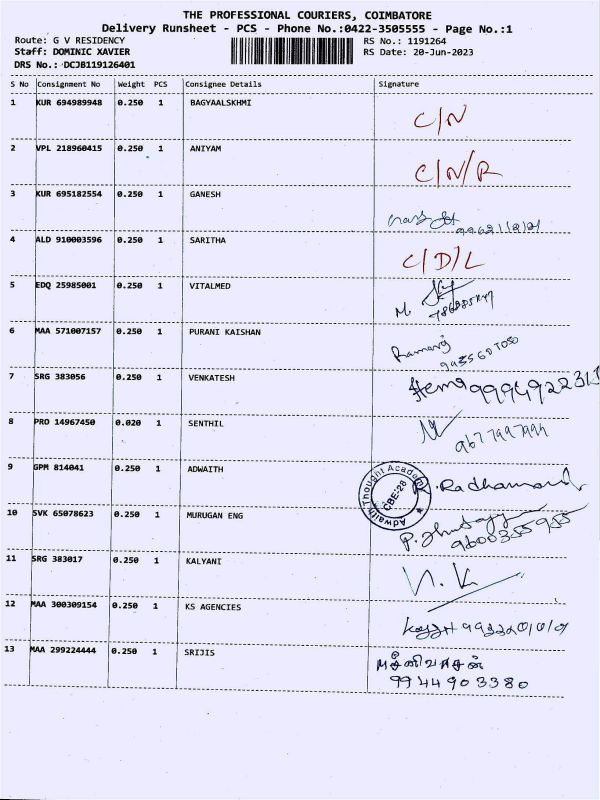 THE PROFESSIONAL COURIERS, COIMBATORE
Delivery Runsheet - PCS - Phone No.:0422-3505555 - Page No.:1
Route: G V RESIDENCY RS No.: 1191264
Staff: DOMINIC XAVIER RS Date: 20-Jun-2023
DRS No.: DCJB119126401
S No Consignment No Weight PCS Consignee Details Signature
1 KUR 694989948 0.250 1 BAGYAALSKHMI C/N
2 VPL 218960415 0.250 1 ANIYAM C/N/R
3 KUR 695182554 0.250 1 GANESH
4 ALD 910003596 0.250 1 SARITHA C/D/L
5 EDQ 25985001 0.250 1 VITALMED M
6 MAA 571007157 0.250 1 PURANI KAISHAN
7 SRG 383056 0.250 1 VENKATESH Hema 9994922311
8 PRO 14967450 0.020 1 SENTHIL
9 GPM 814041 0.250 1 ADWAITH R. Radhamani
Adwaith Thought Academy
CBE-28
10 SVK 65078623 1 MURUGAN ENG 9600355955
11 SRG 383017 0.250 1 KALYANI N. K
12 MAA 300309154 0.250 1 KS AGENCIES
13 MAA 299224444 0.250 1 SRIJIS
9944903380